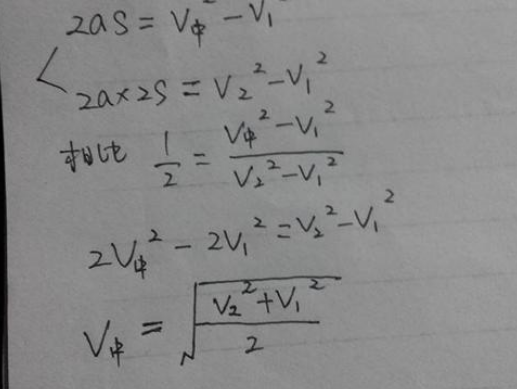 2aS = V中² - V₁²
2a×2S = V₂² - V₁²
相比 1/2 = (V中² - V₁²)/(V₂² - V₁²)
2V中² - 2V₁² = V₂² - V₁²
V中 = √((V₂² + V₁²)/2)